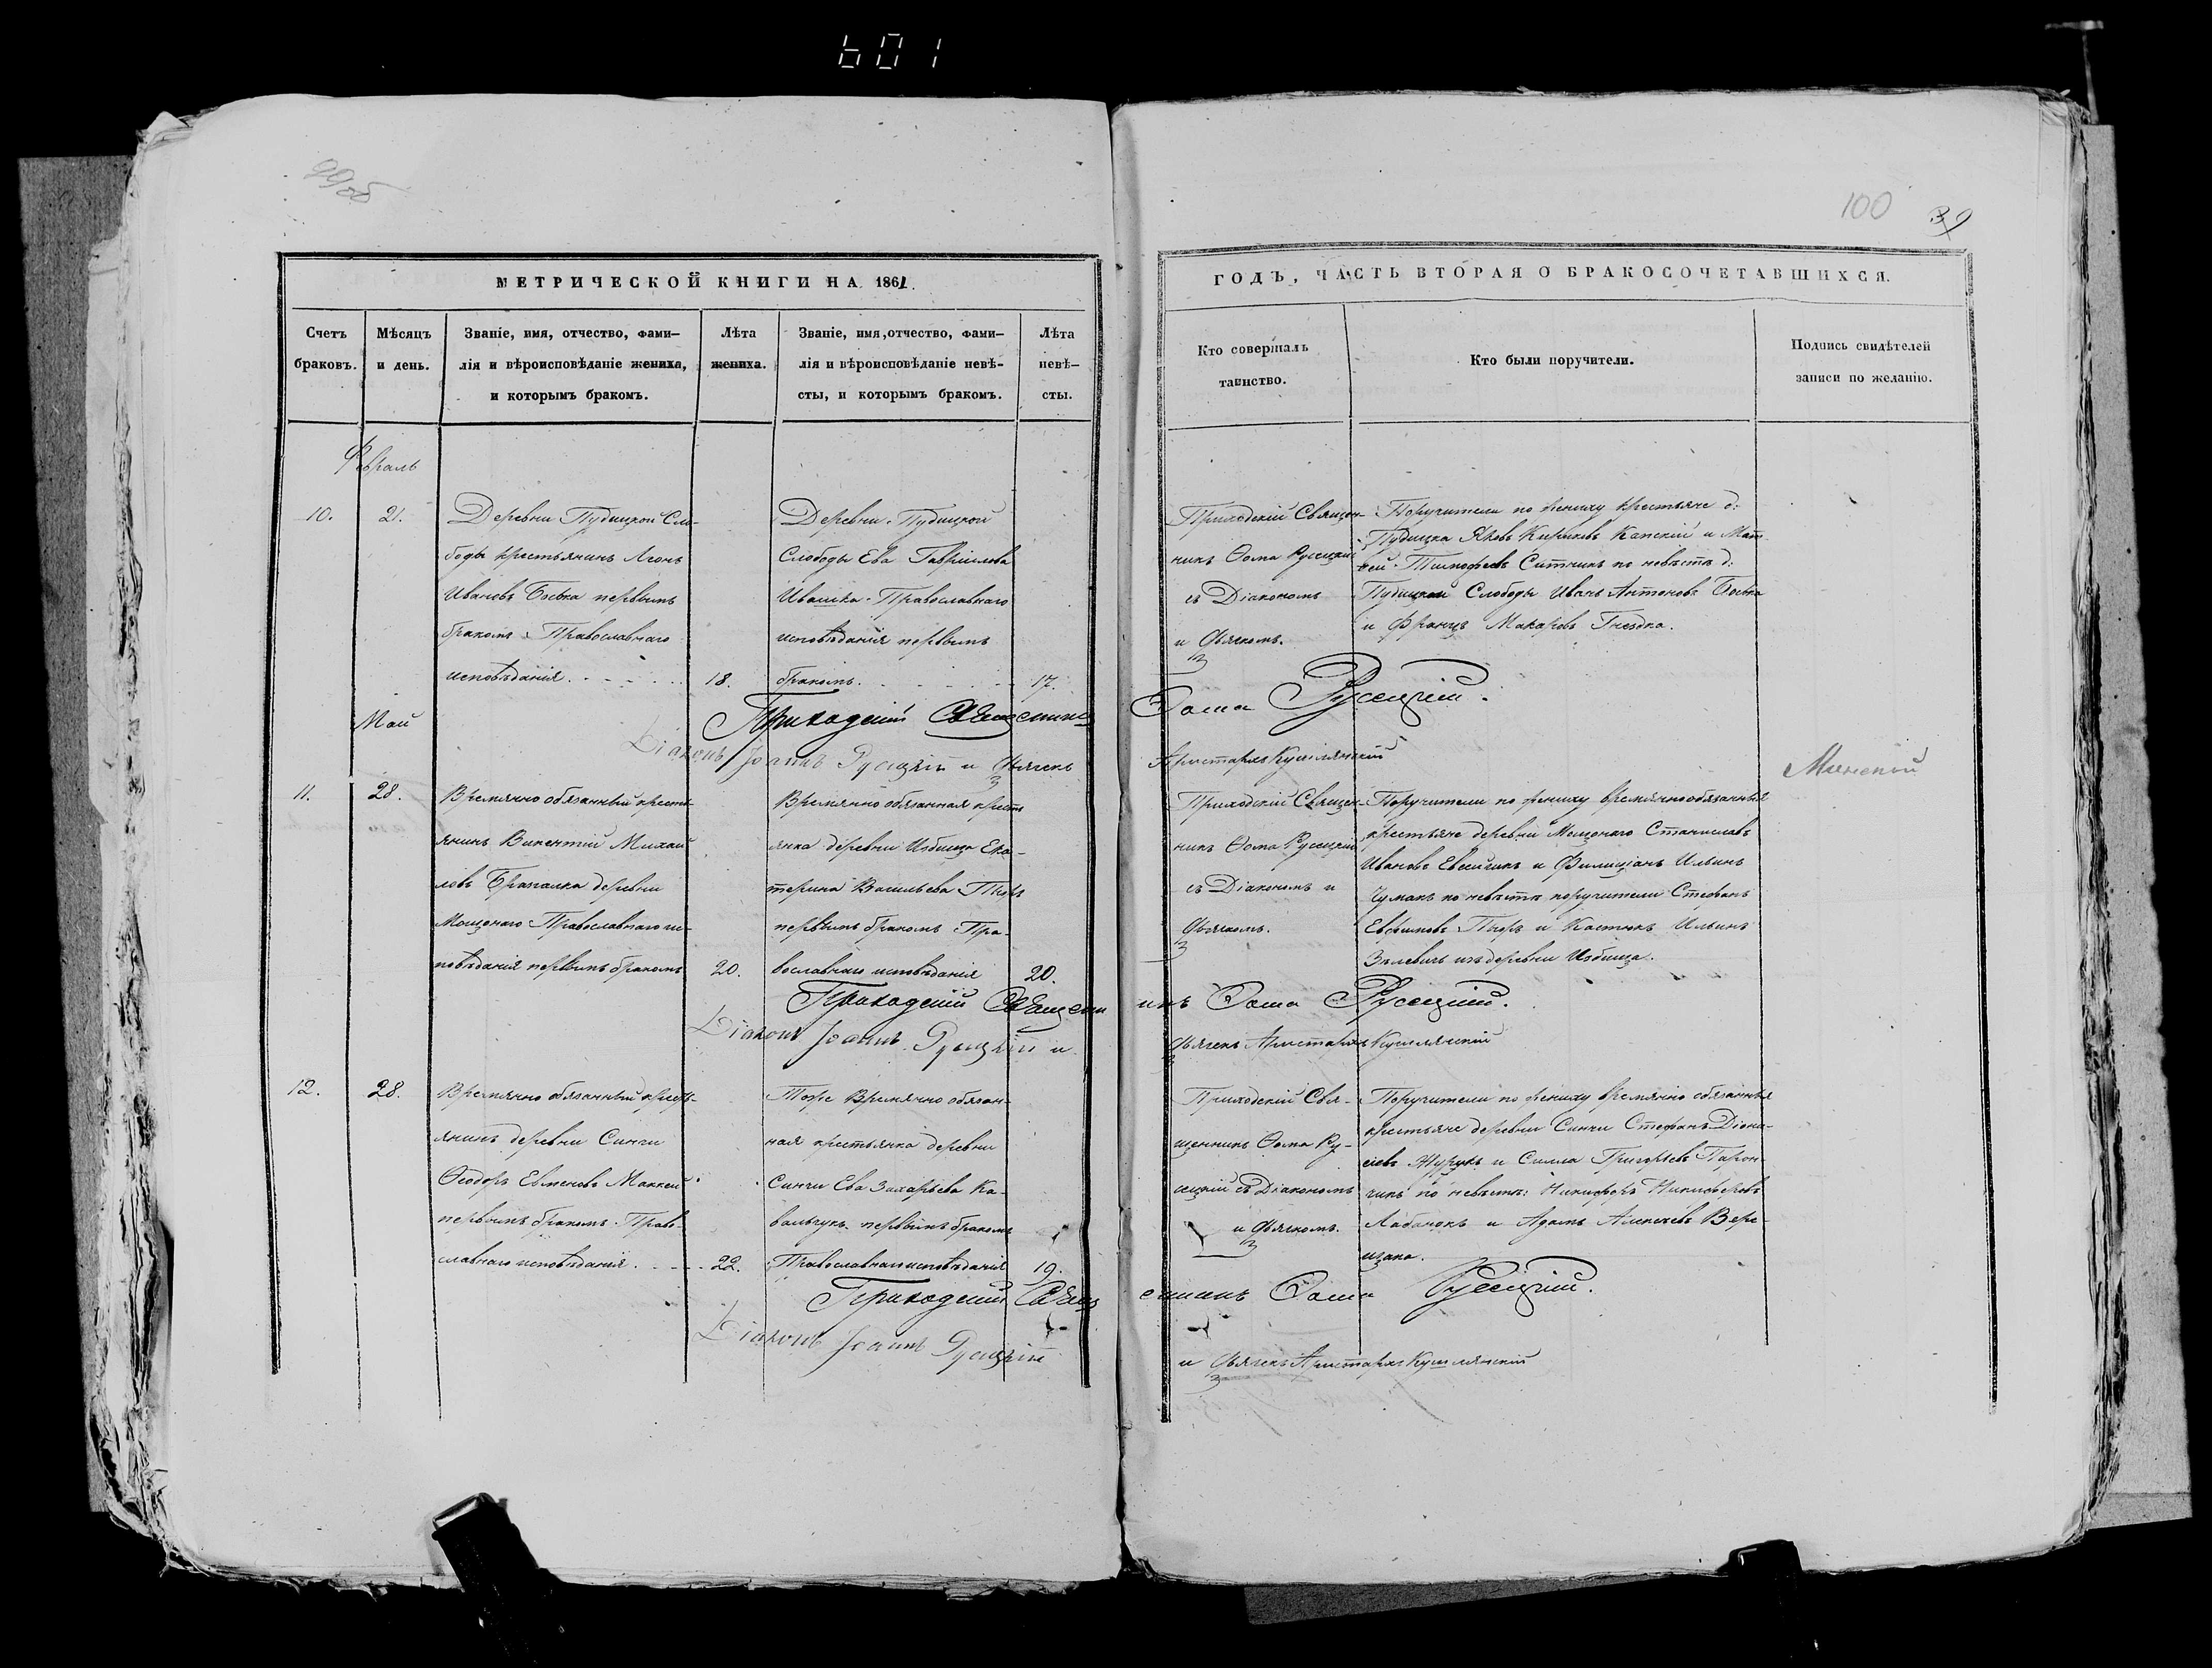 601
99об
100 39
МЕТРИЧЕСКОЙ КНИГИ НА 1861
ГОДЪ, ЧАСТЬ ВТОРАЯ О БРАКОСОЧЕТАВШИХСЯ.
Счетъ
браковъ.
Мѣсяцъ
и день.
Званіе, имя, отчество, фами-
лія и вѣроисповѣданіе жениха,
и которымъ бракомъ.
Лѣта
жениха.
Званіе, имя, отчество, фами-
лія и вѣроисповѣданіе невѣ-
сты, и которымъ бракомъ.
Лѣта
невѣ-
сты.
Кто совершалъ
таинство.
Кто были поручители.
Подпись свидѣтелей
записи по желанію.
Февраль
10.
21.
Деревни Пудицкой Сло-
боды крестьянинъ Леонъ
Ивановъ Боека первымъ
бракомъ Православнаго
исповѣданія
18.
Деревни Пудицкой
Слободы Ева Гавріилова
Ивашка Православнаго
исповѣданія первымъ
бракомъ.
17.
Приходскій Священ-
никъ Ѳома Русецкій
съ Діакономъ
и Дьячкомъ.
Поручители по жениху крестьяне д:
Пудицка Яковъ Кириковъ Капскій и Мат-
вей Тимофеевъ Ситникъ по невѣстѣ д:
Пудицкой Слободы Иванъ Антоновъ Боека
и Францъ Макаровъ Гнездка.
Приходскій Священникъ Ѳома Русецкій.
Діаконъ Іоаннъ Русецкій и Дьячекъ Аристархъ Кушлянскій
Май
Минской
11.
28.
Времянно обязанный кресть-
янинъ Викентій Михай
ловъ деревни
Мощонаго Православнаго ис-
повѣданія первымъ бракомъ
20.
Времянно обязанная кресть
янка деревни Избища Ека-
терина Васильева
первымъ бракомъ Пра-
вославнаго исповѣданія
20.
Приходскій Священ-
никъ Ѳома Русецкій
съ Діакономъ и
Дьячкомъ.
Поручители по жениху времянно обязанныя
крестьяне деревни Мощонаго Станиславъ
Ивановъ и Филиціанъ Ильинъ
Чумакъ по невѣстѣ поручители Стефанъ
Евфимовъ и Костюкъ Ильинъ
Зѣлевичъ изъ деревни Избища.
Приходскій Священникъ Ѳома Русецкій.
Діаконъ Іоаннъ Русецкій и Дьячекъ Аристархъ Кушлянскій
12.
28.
Времянно обязанный кресть-
янинъ деревни Синчи
Ѳеодоръ Евменовъ Маккей
первымъ бракомъ Право-
славнаго исповѣданія
22.
Тоже Времянно обязан-
ная крестьянка деревни
Синчи Ева Захарьева Ко-
вальчукъ первымъ бракомъ
Православнаго исповѣданія
19.
Приходскій Свя-
щенникъ Ѳома Ру-
сецкій съ Діакономъ
и Дьячкомъ.
Поручители по жениху времянно обязанныя
крестьяне деревни Синчи Стефанъ Діони-
сіевъ Журукъ и Силла Григорьевъ Парон-
чикъ по невѣстѣ: Никифоръ Никифоровъ
Лабанокъ и Адамъ Алексѣевъ Вере-
щака.
Приходскій Священникъ Ѳома Русецкій.
Діаконъ Іоаннъ Русецкій
и Дьячекъ Аристархъ Кушлянскій